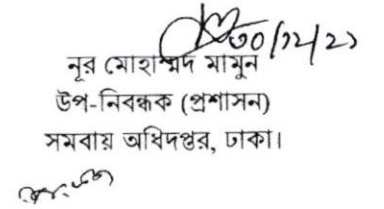 ৩০/১২/২১
নূর মোহাম্মদ মামুন
উপ-নিবন্ধক (প্রশাসন)
সমবায় অধিদপ্তর, ঢাকা।